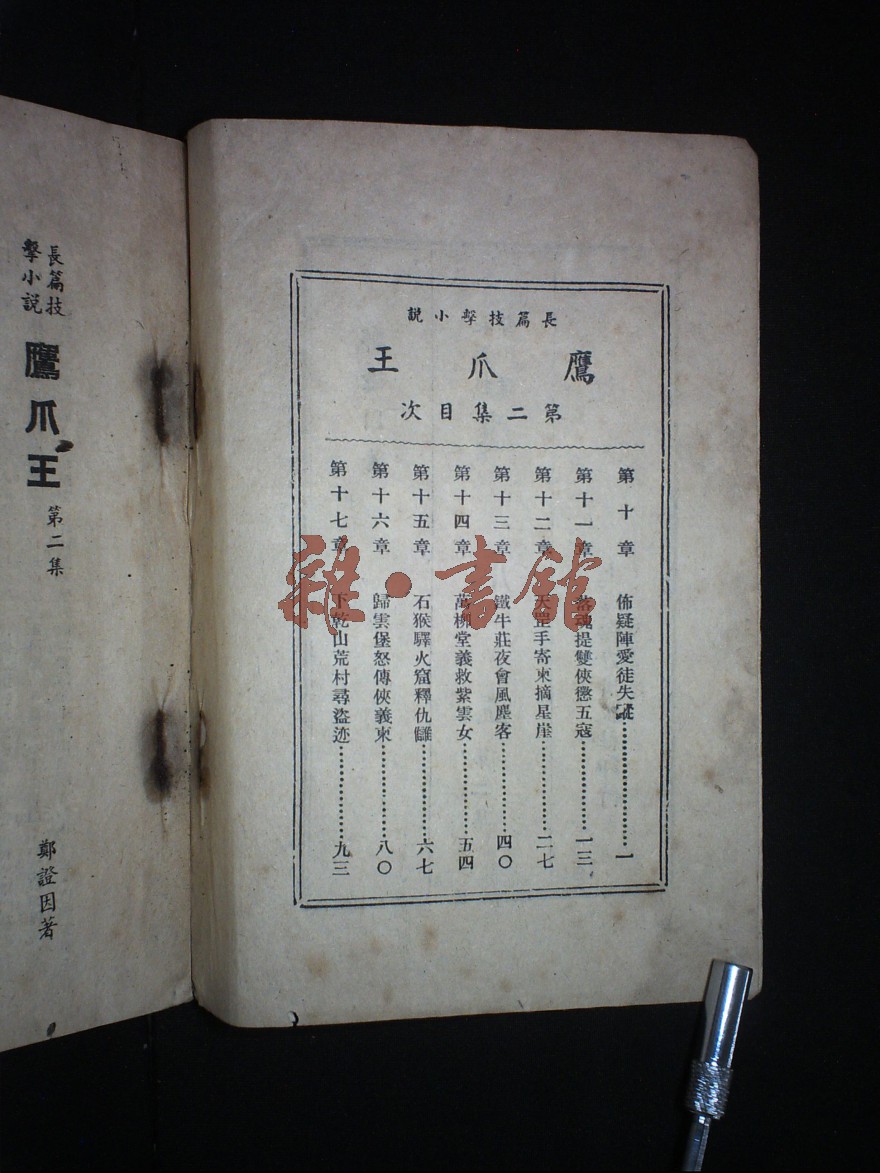 長篇技
擊小説
鷹爪王
第二集
鄭證因著
長篇技擊小說
鷹爪王
第二集目次
第十章 佈疑陣愛徒失蹤……一
第十一章 落魂堤雙俠懲五寇……一三
第十二章 天罡手寄柬摘星崖……二七
第十三章 鐵牛莊夜會風塵客……四〇
第十四章 萬柳堂義救紫雲女……五四
第十五章 石猴驛火窟釋仇讎……六七
第十六章 歸雲堡怒傳俠義柬……八〇
第十七章 下乾山荒村尋盜迹……九三
雜·書館